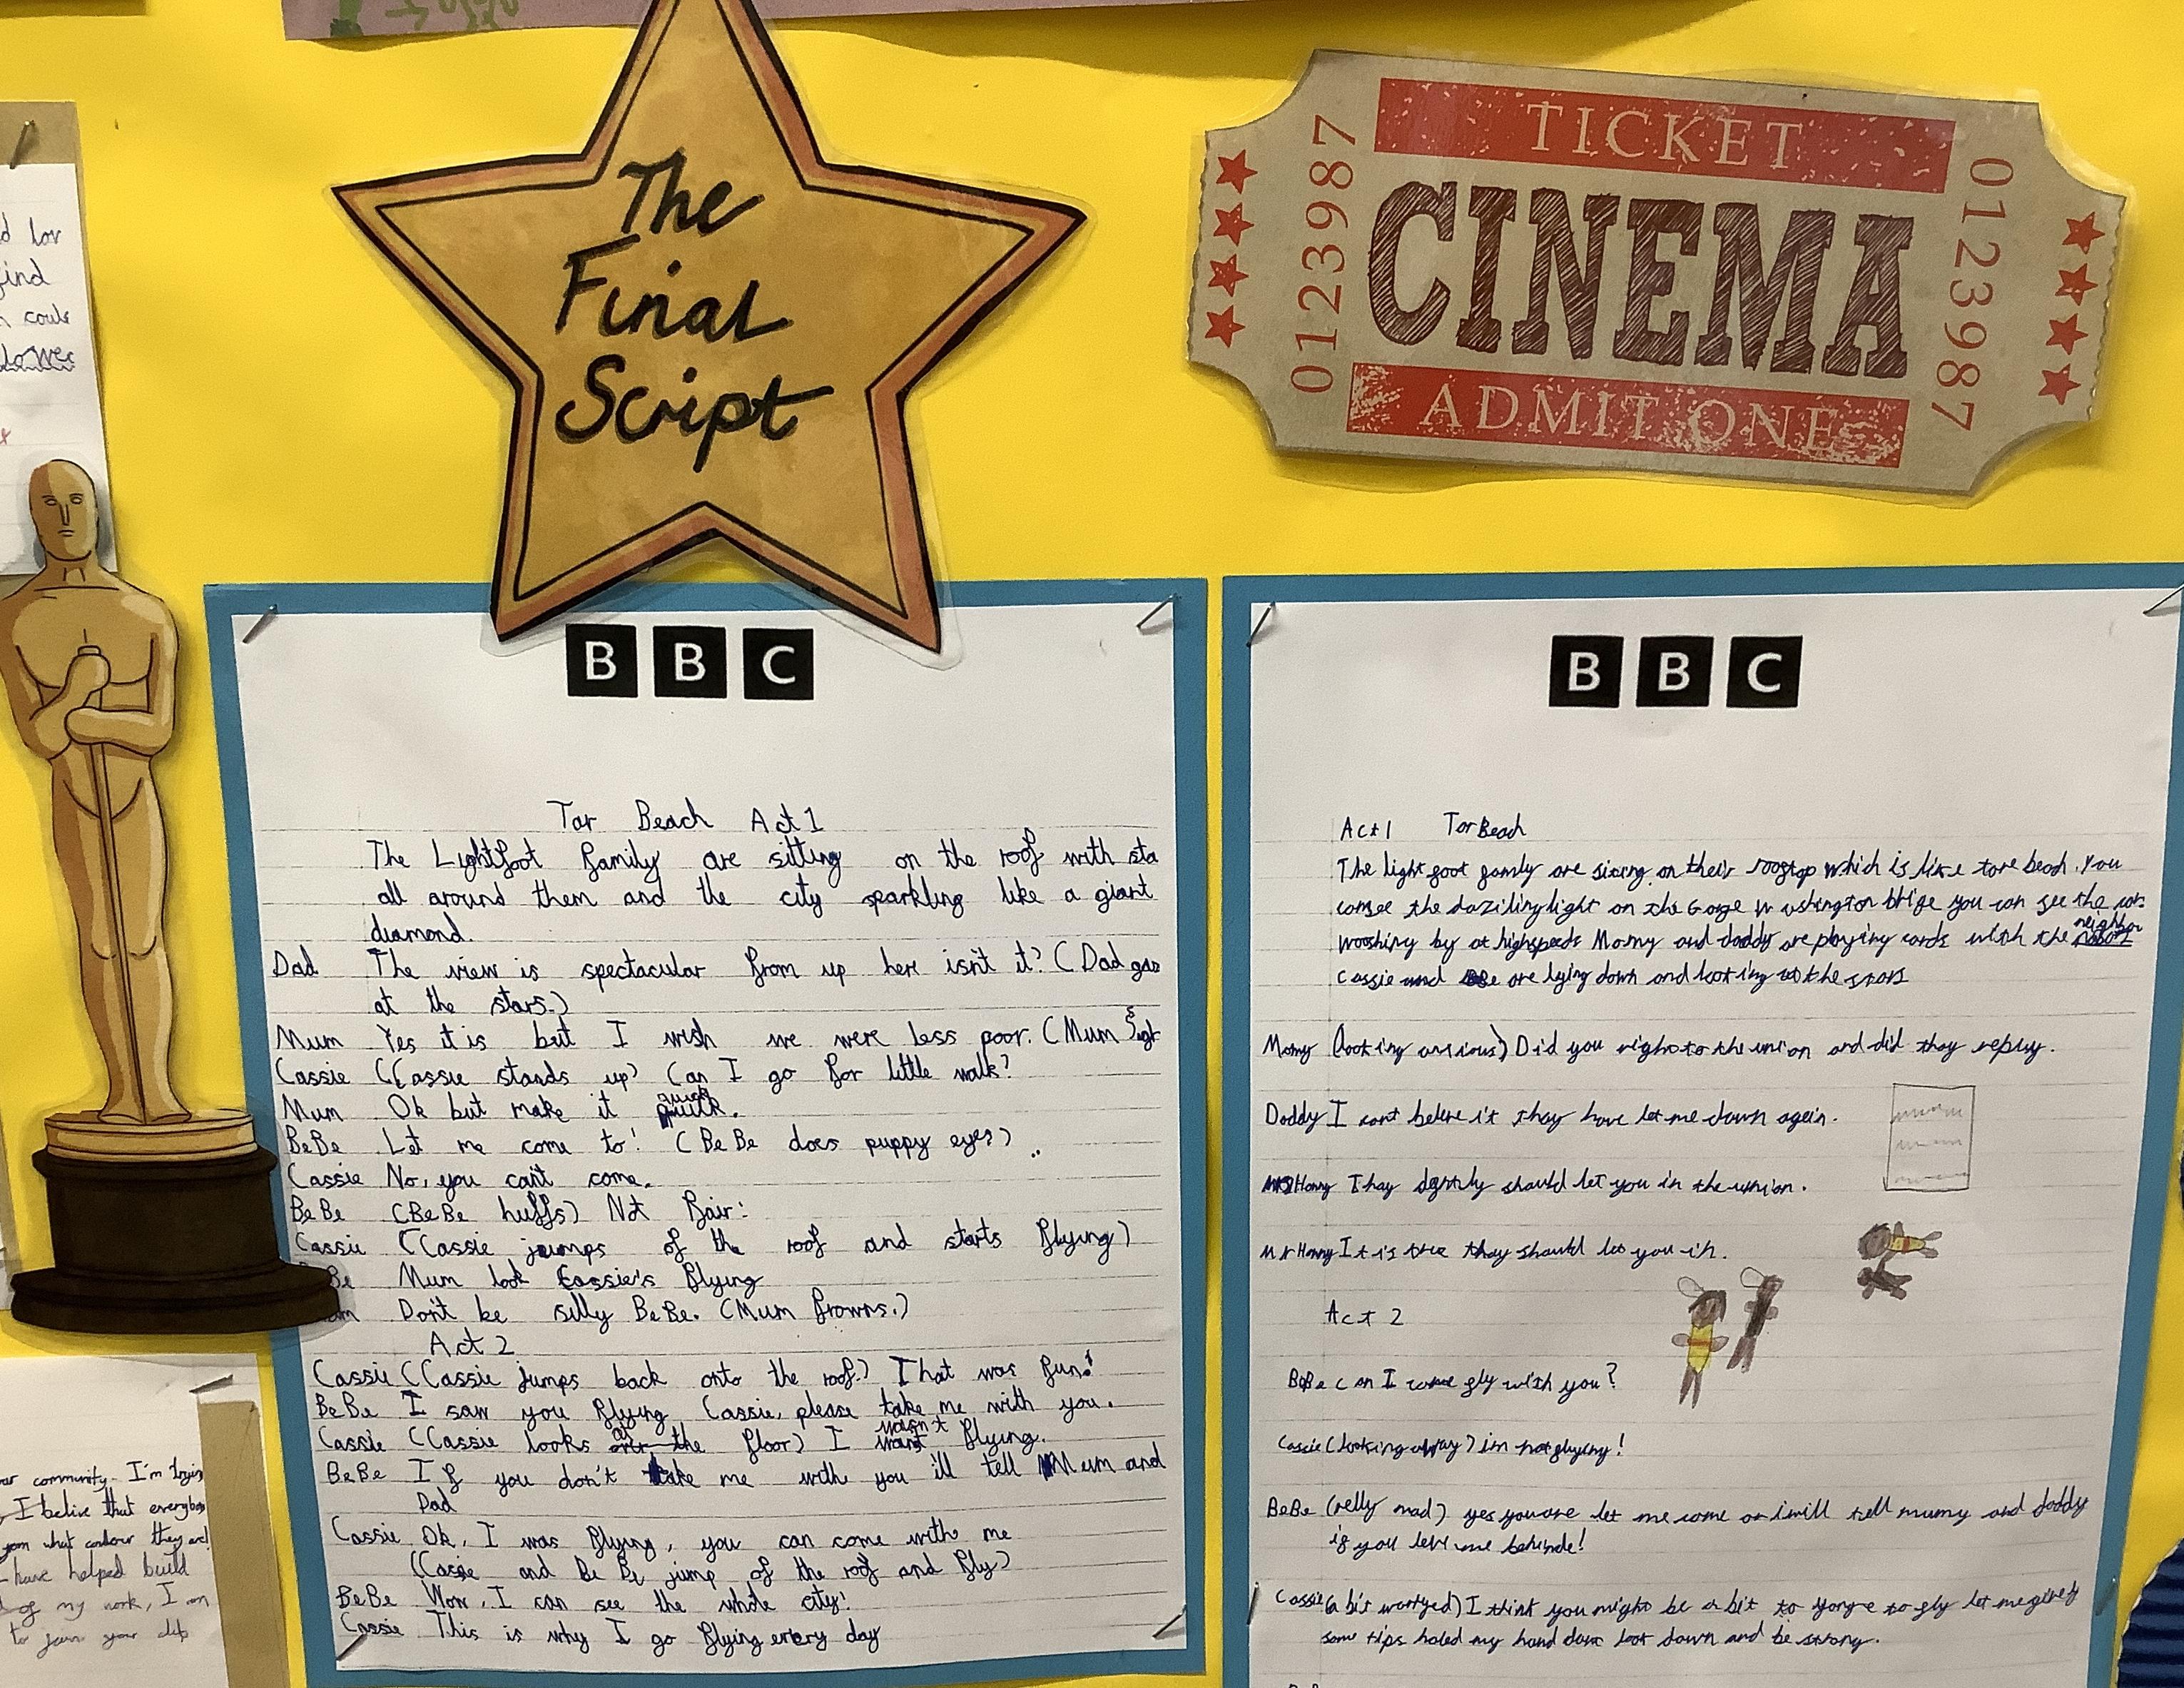 The
Final
Script
TICKET
CINEMA
ADMIT ONE
0123987
0123987
d lov
find
n could
BBC
Tar Beach Act 1
The Lightfoot family are sitting on the roof with sta
all around them and the city sparkling like a giant
diamond.
Dad The view is spectacular from up here isn't it? (Dad gaz
at the stars.)
Mum Yes it is but I wish we were less poor. (Mum sigh
Cassie (Cassie stands up) Can I go for little walk?
Mum Ok but make it quick.
BeBe Let me come to! (BeBe does puppy eyes)
Cassie No, you can't come.
BeBe (BeBe huffs) Not fair!
Cassie (Cassie jumps of the roof and starts flying)
Be Mum look Cassie's flying
um Don't be silly BeBe. (Mum frowns.)
Act 2
Cassie (Cassie jumps back onto the roof.) That was fun!
BeBe I saw you flying Cassie, please take me with you.
Cassie (Cassie looks at the floor) I wasn't flying.
BeBe If you don't take me with you ill tell Mum and
Dad
Cassie Ok, I was flying, you can come with me
(Cassie and BeBe jump of the roof and fly)
BeBe Wow, I can see the whole city!
Cassie This is why I go flying every day
BBC
Act 1 Tar Beach
The light foot famly are siting on their rooftop which is like tare beach. You
consee the dazilinglight on the Gorge Washington brige you can see the
wooshing by at highspeeds Momy and daddy are playing cards with the neighbor
Cassie and BeBe are lying down and looking at the stars
Momy (looking anxious) Did you right to the union and did they replay.
Daddy I cant beleve it thay have let me down again.
Mrs Honny Thay defntly should let you in the union.
Mr Honny It is true thay should let you in.
Act 2
BeBe can I come fly with you?
Cassie (looking away) im not flying!
BeBe (relly mad) yes you are let me come or i will tell mumy and daddy
if you leve me behinde!
Cassie (a bit worryed) I think you might be a bit to yonge to fly let me give you
some tips holed my hand dont look down and be strong.
our community. I'm trying
I belive that everybo
from what colour they are!
have helped build
of my work, I am
to join your club